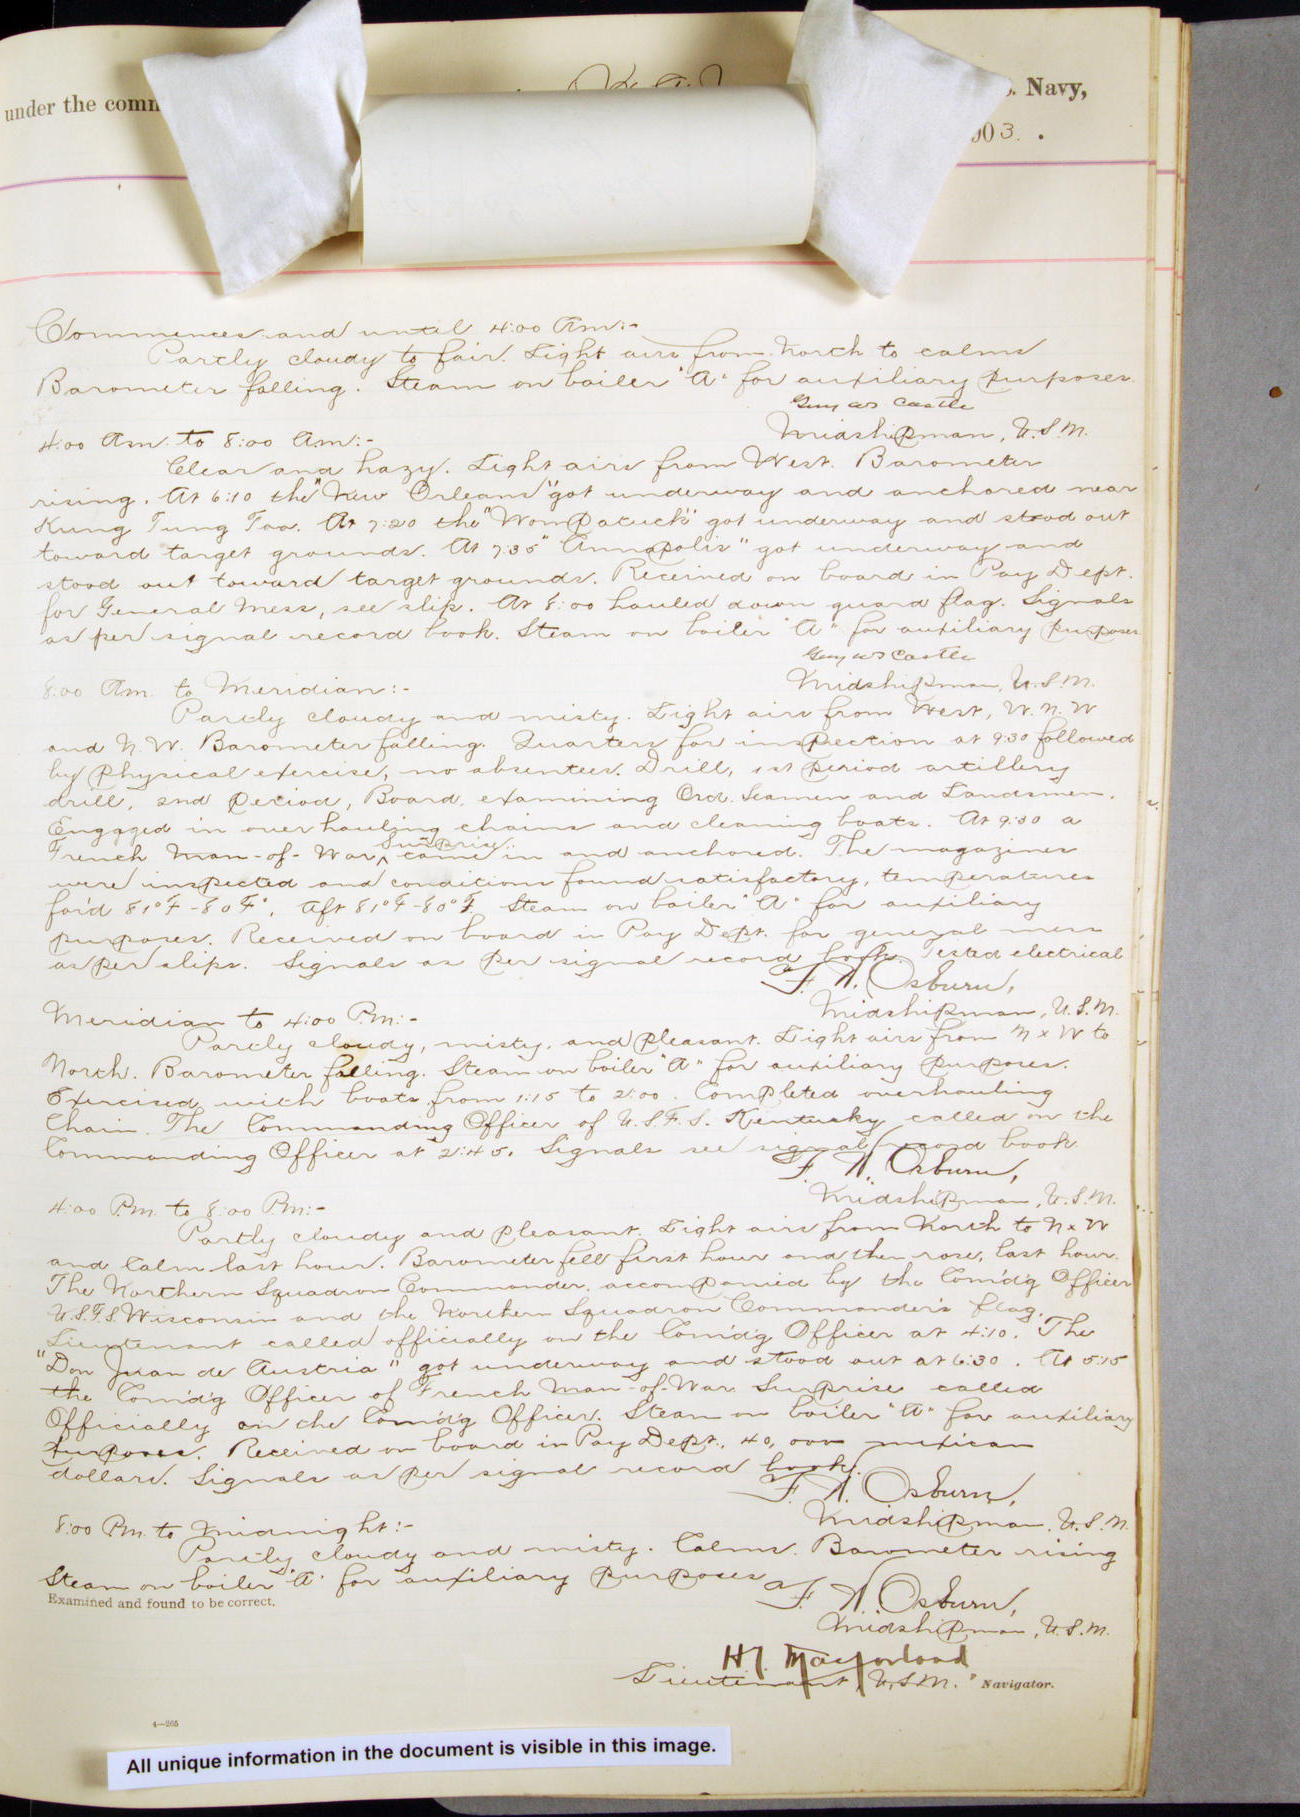 under the comm
. Navy,
903.
Commences and until 4:00 Am:-
Partly cloudy to fair. Light airs from North to calms
Barometer falling. Steam on boiler "A" for auxiliary purposes.
Guy W S Castle
Midshipman, U.S.N.
4:00 Am. to 8:00 Am:-
Clear and hazy. Light airs from West. Barometer
rising. At 6:10 the "New Orleans" got underway and anchored near
Kung Tung Tao. At 7:20 the "Wompatuck" got underway and stood out
toward target grounds. At 7:35 "Annapolis" got underway and
stood out toward target grounds. Received on board in Pay Dept.
for General Mess, see slip. At 8:00 hauled down guard flag. Signals
as per signal record book. Steam on boiler "A" for auxiliary purposes
Guy W S Castle
Midshipman, U.S.N.
8:00 Am. to Meridian:-
Partly cloudy and misty. Light airs from West, W.N.W
and N.W. Barometer falling. Quarters for inspection at 9:30 followed
by physical exercise, no absentees. Drill, 1st period artillery
drill, 2nd period, Board examining Ord. Seamen and Landsmen.
Engaged in overhauling chains and cleaning boats. At 9:30 a
French Man-of-War "Surprise" came in and anchored. The magazines
were inspected and conditions found satisfactory, temperatures
for'd 81°F-80F°. Aft 81°F-80°F. Steam on boiler "A" for auxiliary
purposes. Received on board in Pay Dept. for general mess
as per slips. Signals as per signal record book. Tested electrical
F. N. Osburn,
Midshipman, U.S.N.
Meridian to 4:00 P.m:-
Partly cloudy, misty, and pleasant. Light airs from N x W to
North. Barometer falling. Steam on boiler "A" for auxiliary purposes.
Exercised with boats from 1:15 to 2:00. Completed overhauling
Chain. The Commanding Officer of U.S.F.S. Kentucky called on the
Commanding Officer at 2:45. Signals see signal record book
F. N. Osburn,
Midshipman, U.S.N.
4:00 P.m. to 8:00 P.m:-
Partly cloudy and pleasant. Light airs from North to N x W
and Calm last hour. Barometer fell first hour and then rose, last hour.
The Northern Squadron Commander, accompanied by the Com'd'g Officer
U.S.F.S. Wisconsin and the Northern Squadron Commander's flag
Lieutenant called officially on the Com'd'g Officer at 4:10. The
"Don Juan de Austria" got underway and stood out at 6:30. At 5:15
the Com'd'g Officer of French Man-of-War Surprise called
Officially on the Com'd'g Officer. Steam on boiler "A" for auxiliary
purposes. Received on board in Pay Dept., 40,000 mexican
dollars. Signals as per signal record book.
F. N. Osburn,
Midshipman, U.S.N.
8:00 P.m. to Midnight:-
Partly cloudy and misty. Calms. Barometer rising
Steam on boiler "A" for auxiliary purposes
F. N. Osburn,
Examined and found to be correct.
Midshipman, U.S.N.
Lieutenant, U.S.N. Navigator.
4—265
All unique information in the document is visible in this image.